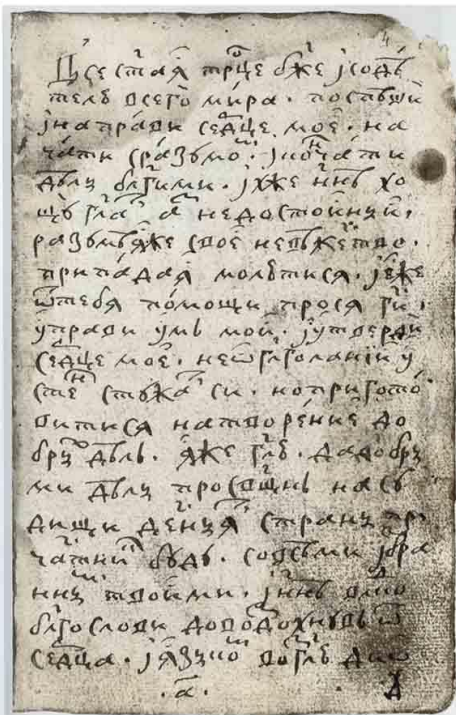 Всест҃ая трⷪ҇це бж҃е ісодѣ
телю всего міра · поспѣши
інаправи сер҃дце моѐ · на
чати сразꙋмоⷨ · ікоⷩчати
дѣлы бл҃гими · іхже нн҃ѣ хо
щꙋ гл҃аⷮ аⷥ недостоиныи ·
разꙋмѣяже своѐ невѣжеⷭтво ·
припадая молютися · іѐже
ѿтебя помощи прося гд҃и ·
ꙋправи ꙋмь мои · іꙋтверди
сердце мое · неѡгл҃голаніи ꙋ
стеⷩ стꙋжаⷮси · нопригото
витися натворение до
брыⷯ дѣль · яже гл҃ю · дадобры
ми дѣлы просвѣщнь насꙋ
дищи десныя тⷤи страны при
частниⷦ бꙋдꙋ · совсѣми ізбра
нныⷨи твоими · інн҃ѣ влⷣко
бл҃гослови давоздохнꙋвъ ѿ
сердца · іязыкоⷨ
· а҃ ·